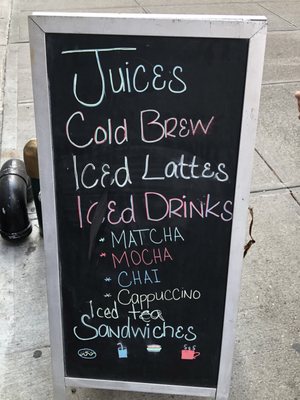 Juices
Cold Brew
Iced Lattes
Iced Drinks
* Matcha
* Mocha
* Chai
* Cappuccino
Iced tea
Sandwiches